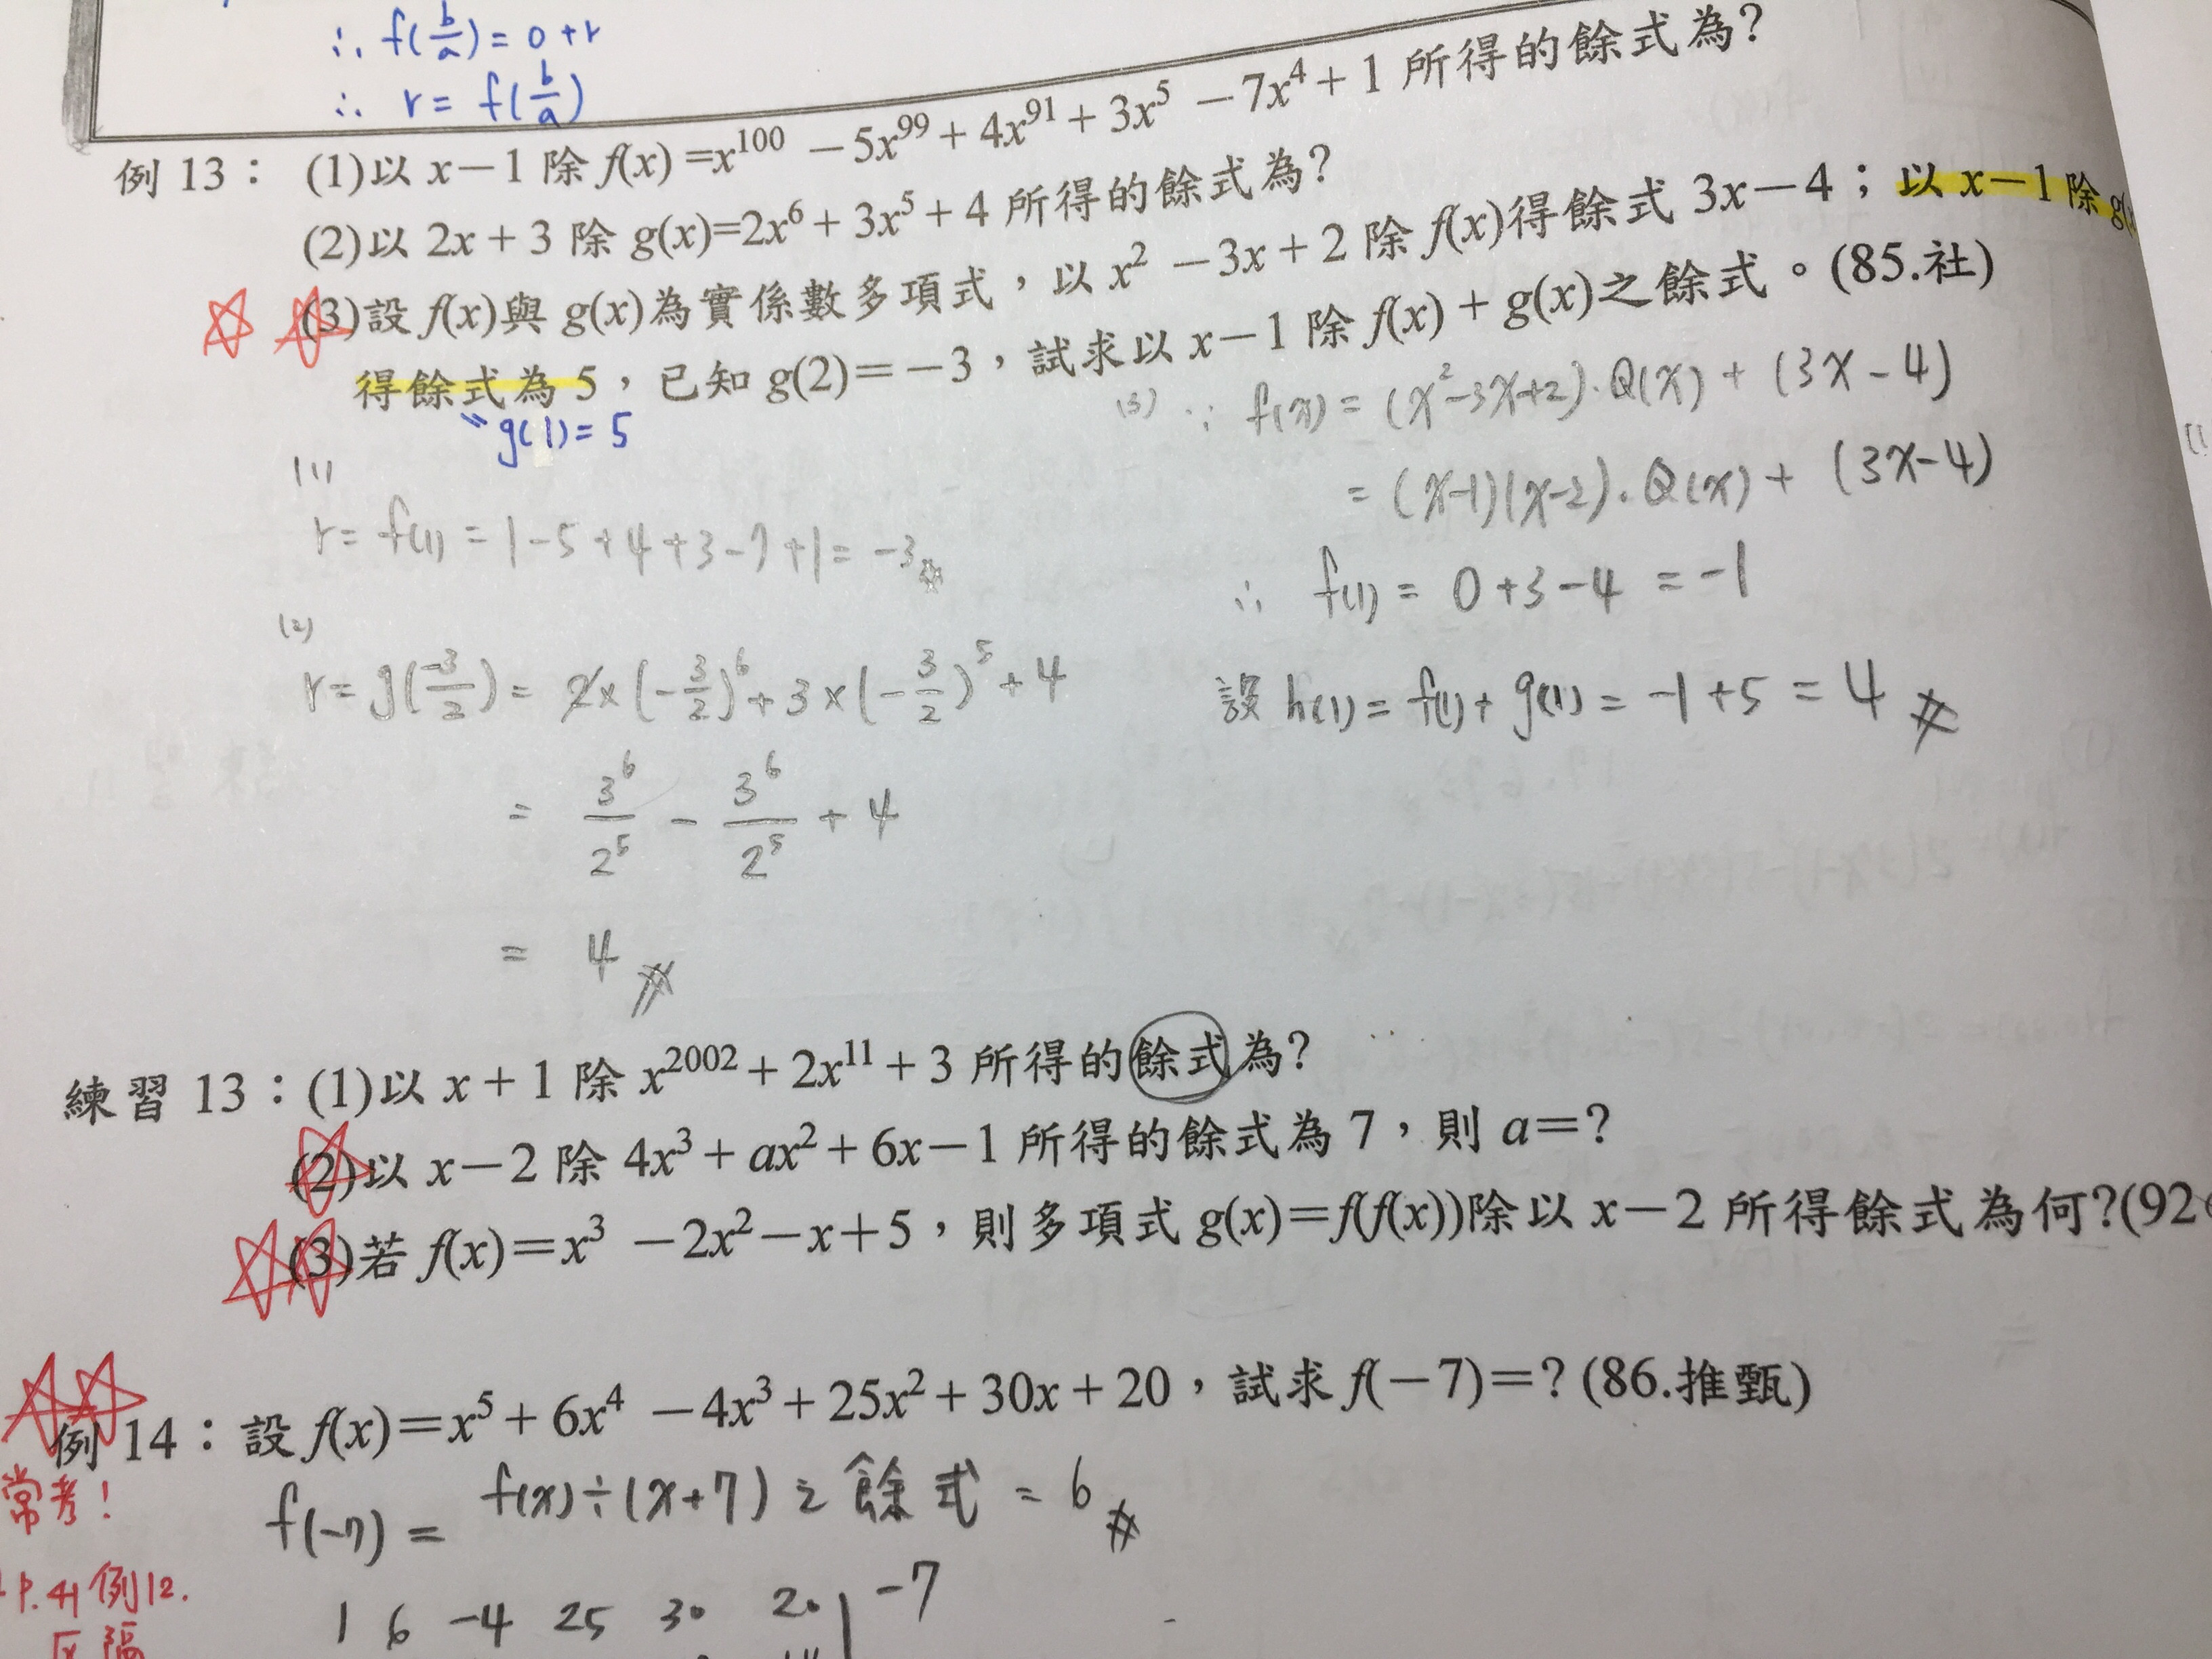 ∴ f(b/a) = 0 + r
∴ r = f(b/a)
例 13：(1)以 x－1 除 f(x) =x^100 －5x^99＋4x^91＋3x^5 －7x^4＋1 所得的餘式為?
(2)以 2x＋3 除 g(x)=2x^6＋3x^5＋4 所得的餘式為?
(3)設 f(x)與 g(x)為實係數多項式，以 x^2 －3x＋2 除 f(x)得餘式 3x－4；以 x－1 除 g(
得餘式為 5，已知 g(2)＝－3，試求以 x－1 除 f(x)＋g(x)之餘式。(85.社)
g(1) = 5
(1)
r = f(1) = 1－5＋4＋3－7＋1 = －3
(2)
r = g(-3/2) = 2×(-3/2)^6 + 3×(-3/2)^5 + 4
= 3^6/2^5 － 3^6/2^5 + 4
= 4
(3) ∵ f(x) = (x^2－3x+2)·Q(x) + (3x－4)
= (x－1)(x－2)·Q(x) + (3x－4)
∴ f(1) = 0＋3－4 = －1
設 h(1) = f(1) + g(1) = －1＋5 = 4
練習 13：(1)以 x＋1 除 x^2002＋2x^11＋3 所得的餘式為?
(2)以 x－2 除 4x^3＋ax^2＋6x－1 所得的餘式為 7，則 a＝?
(3)若 f(x)＝x^3 －2x^2－x＋5，則多項式 g(x)＝f(f(x))除以 x－2 所得餘式為何?(92
例 14：設 f(x)＝x^5＋6x^4 －4x^3＋25x^2＋30x＋20，試求 f(－7)＝? (86.推甄)
常考！
f(－7) = f(x)÷(x+7) 之餘式 = 6
P.41 例12.
1 6 －4 25 30 20 | －7